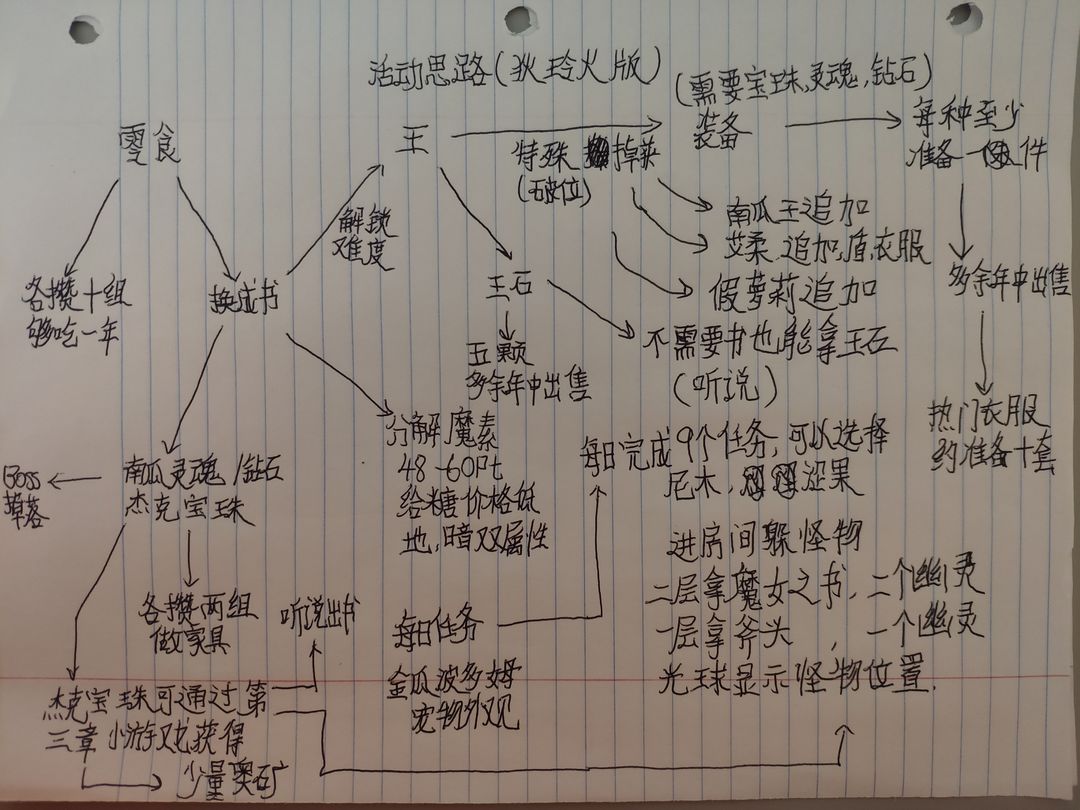 活动思路(狄玲火版)
零食
各攒十组
够吃一年
换成书
解锁
难度
王
特殊掉落
(破位)
(需要宝珠,灵魂,钻石)
装备
每种至少
准备一件
多余年中出售
热门衣服
约准备十套
南瓜王追加
艾柔追加,盾,衣服
假萝莉追加
王石
五颗
多余年中出售
不需要书也能拿王石
(听说)
分解魔素
48-60Pt
给糖价格低
地,暗双属性
南瓜灵魂/钻石
杰克宝珠
Boss
掉落
各攒两组
做家具
听说出书
杰克宝珠可通过第
三章小游戏获得
少量奥矿
每日任务
金瓜波多姆
宠物外观
每日完成9个任务,可以选择
尼木,涩果
进房间躲怪物
二层拿魔女之书,二个幽灵
一层拿斧头,一个幽灵
光球显示怪物位置.